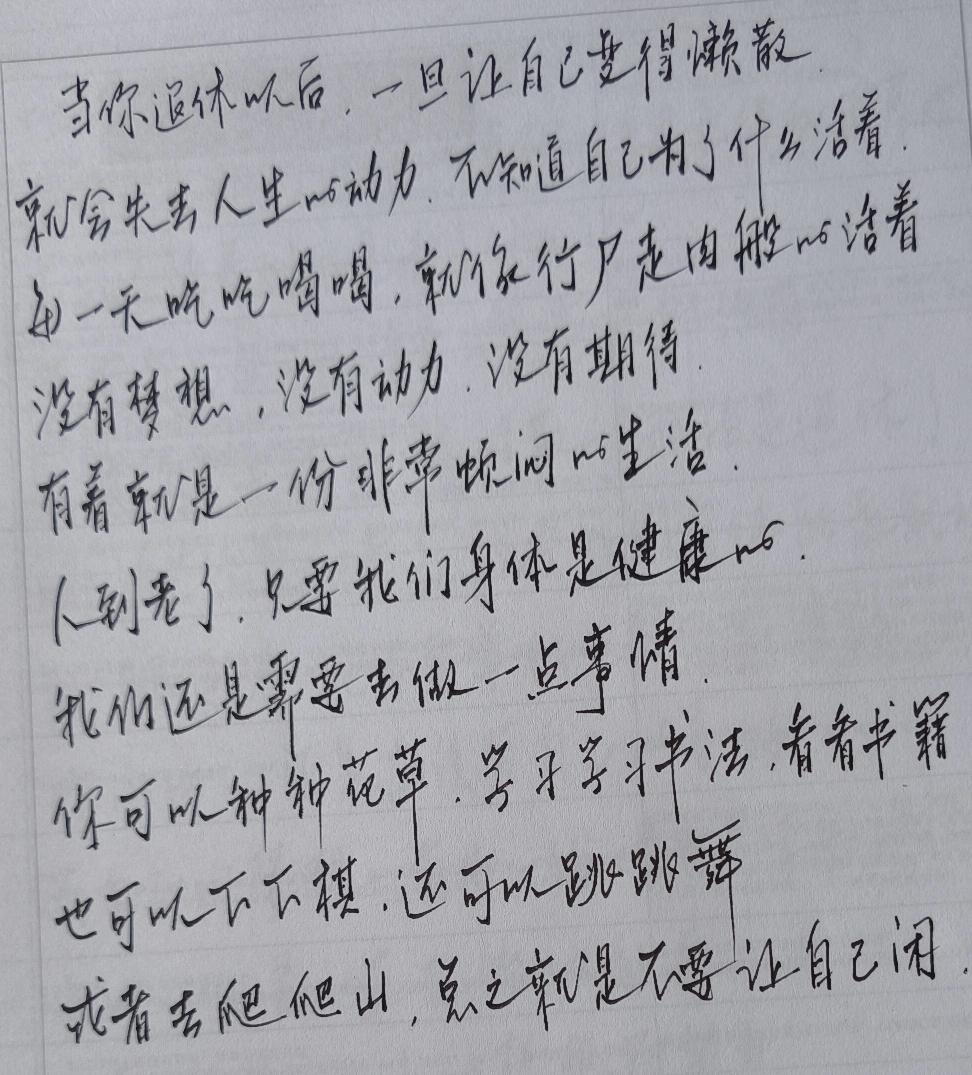 当你退休以后,一旦让自己变得懒散.
就会失去人生的动力.不知道自己为了什么活着.
每一天吃吃喝喝,就像行尸走肉般的活着
没有梦想,没有动力.没有期待.
有着就是一份非常烦闷的生活.
人到老了.只要我们身体是健康的.
我们还是需要去做一点事情.
你可以种种花草.学习学习书法.看看书籍
也可以下下棋.还可以跳跳舞
或者去爬爬山,总之就是不要让自己闲.